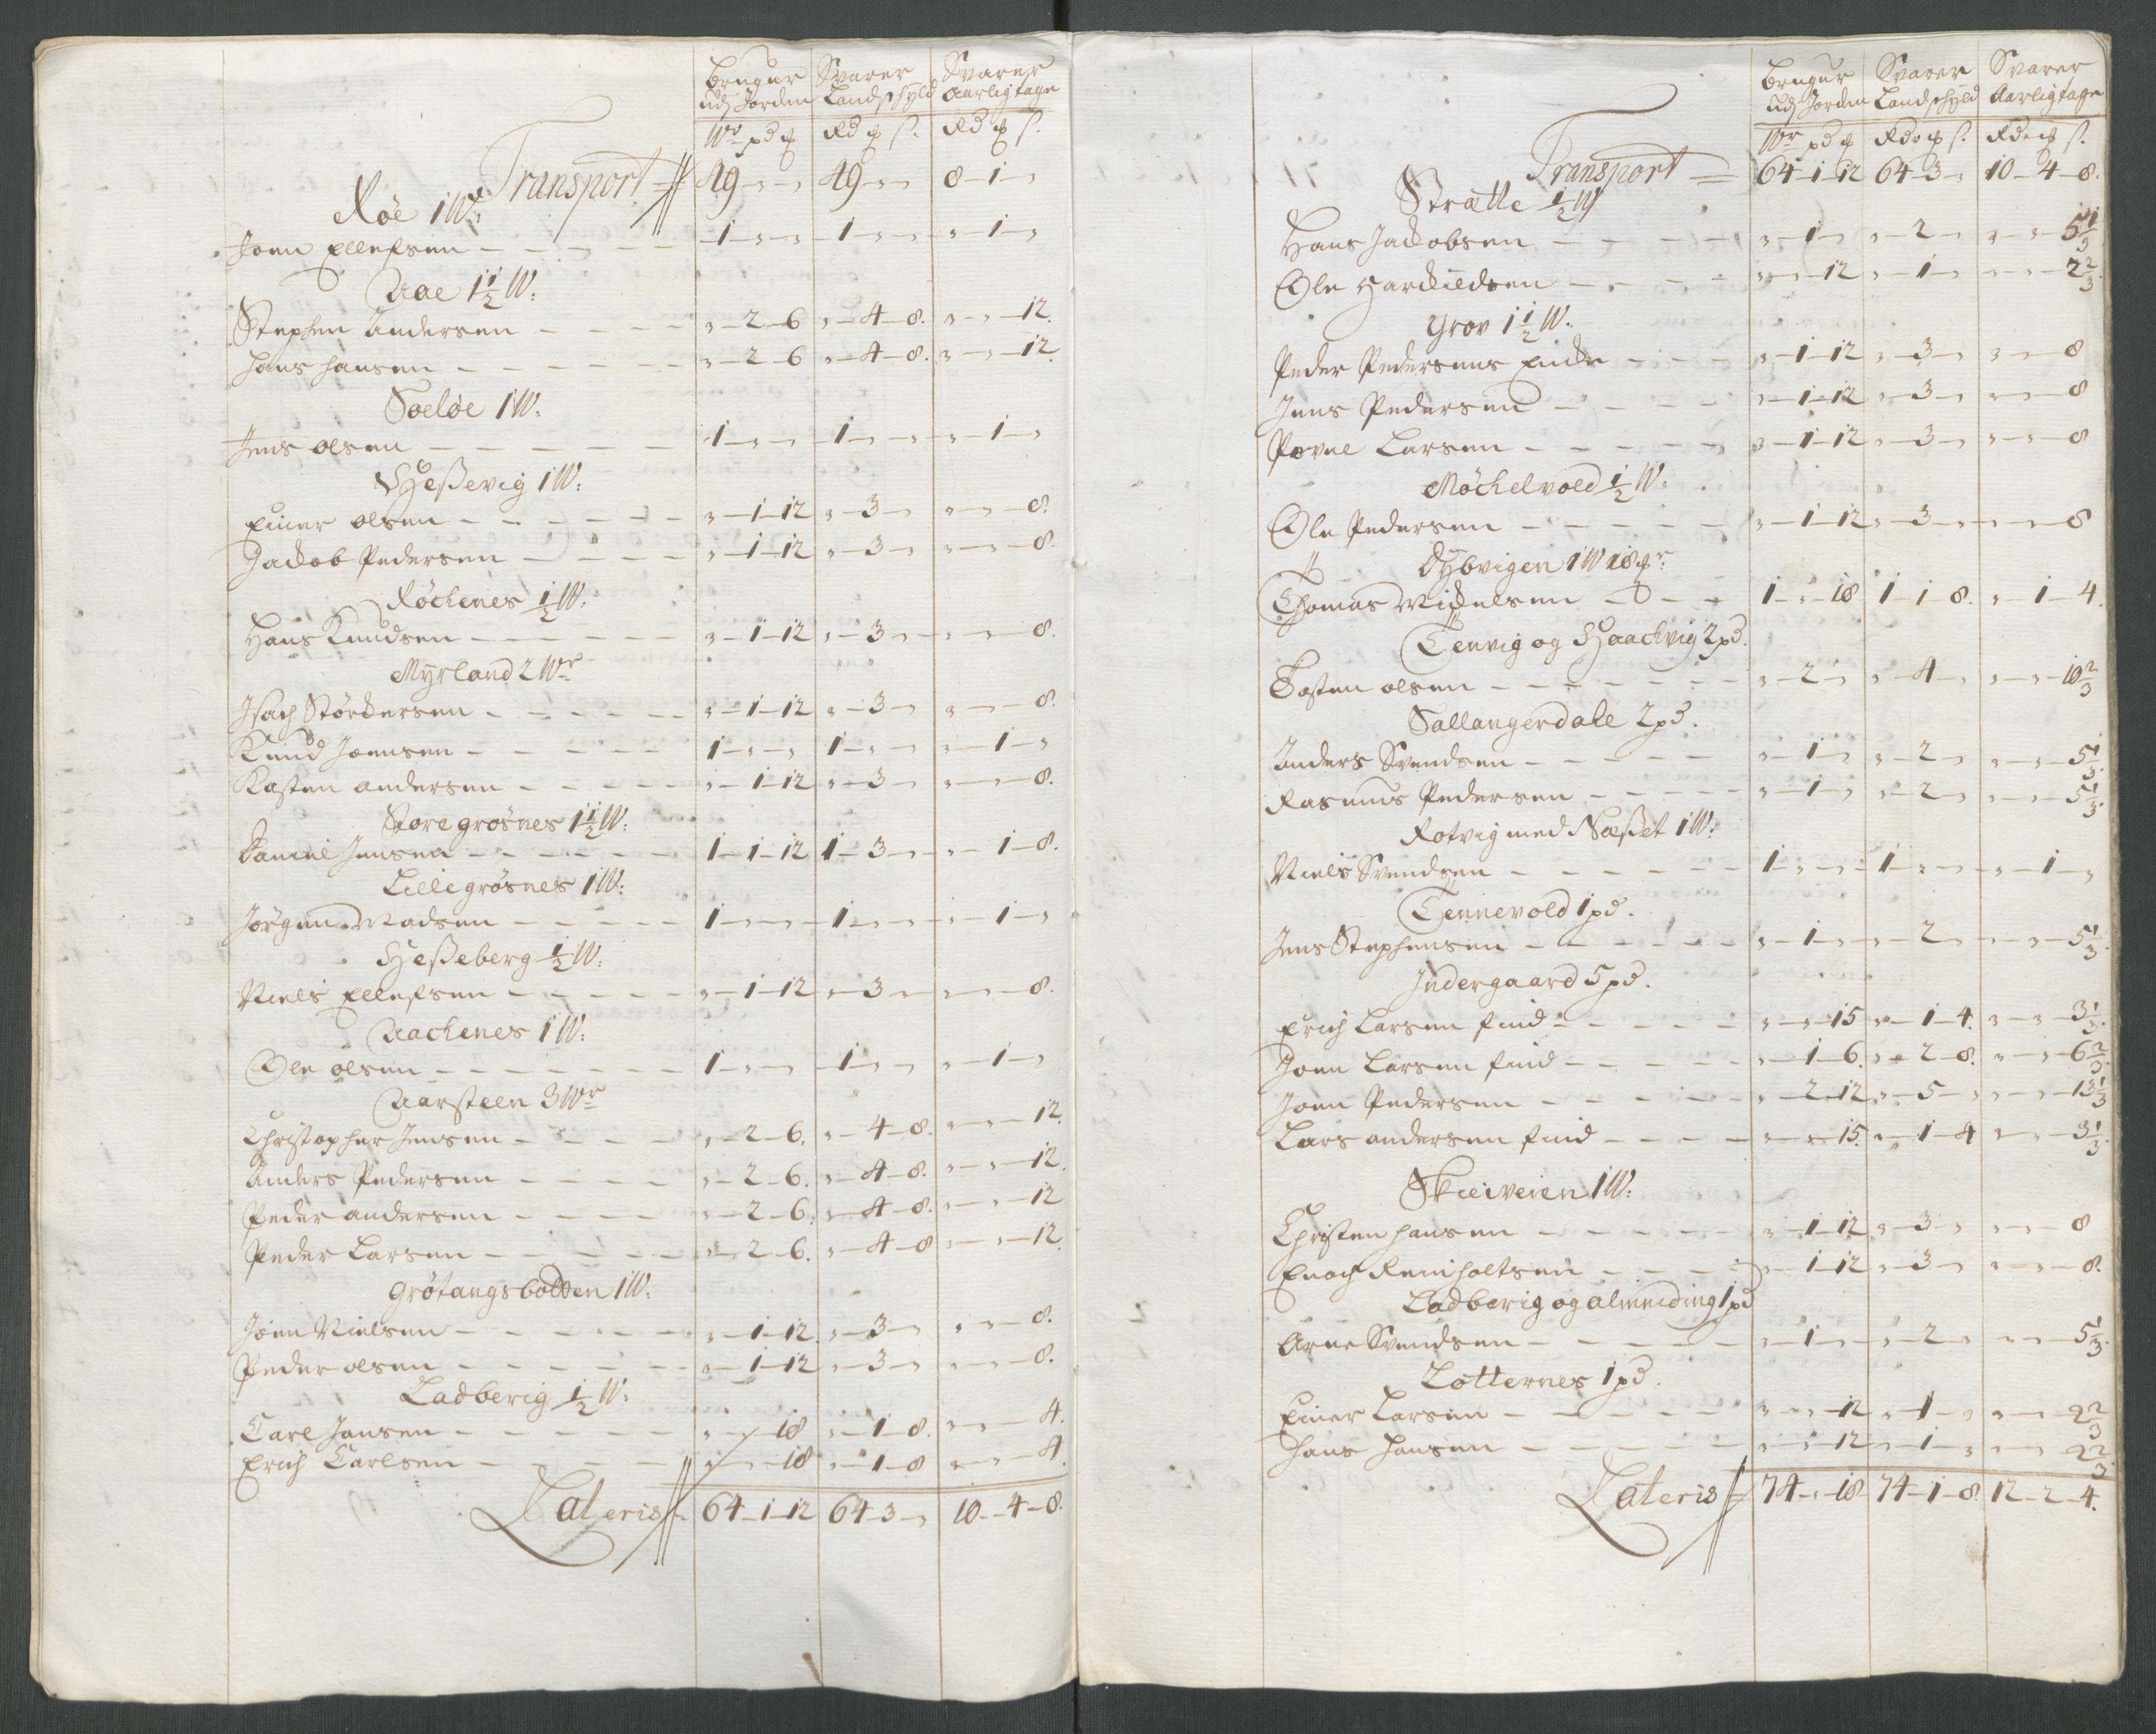 Bruger Svarer Svarer
udj Jorden Landschyld Aarlig tage
Wr pd # Rd # s. Rd # s.
Transport 49 - „ - „ 49 - „ - „ 8 - 1 - „
Røe 1 W:
Joen Ellefsen - 1 - „ - „ 1 - „ - „ „ - 1 - „
Aae 1 1/2 W:
Stephen Andersen - „ - 2 - 6 „ - 4 - 8. „ - „ - 12.
Hans Hansen - „ - 2 - 6 „ - 4 - 8. „ - „ - 12.
Soeløe 1 W:
Jens Olsen - 1 - „ - „ 1 - „ - „ „ - 1 - „
Heßevig 1 W:
Einer Olsen - „ - 1 - 12 „ - 3 - „ „ - „ - 8.
Jackob Pedersen - „ - 1 - 12 „ - 3 - „ „ - „ - 8.
Røchenes 1/2 W:
Hans Knudsen - „ - 1 - 12 „ - 3 - „ „ - „ - 8.
Myrland 2 Wr
Isach Størckersen - „ - 1 - 12 „ - 3 - „ „ - „ - 8.
Knud Joensen - 1 - „ - „ 1 - „ - „ „ - 1 - „
Kasten Andersen - „ - 1 - 12 „ - 3 - „ „ - „ - 8.
Store grøsnes 1 1/2 W:
Daniel Jensen - 1 - 1 - 12 1 - 3 - „ „ - 1 - 8.
Lille grøsnes 1 W:
Jørgen Madsen - 1 - „ - „ 1 - „ - „ „ - 1 - „
Heßeberg 1/2 W:
Niels Ellefsen - „ - 1 - 12 „ - 3 - „ „ - „ - 8.
Aachenes 1 W:
Ole Olsen - 1 - „ - „ 1 - „ - „ „ - 1 - „
Aarsteen 3 Wr
Christopher Jensen - „ - 2 - 6. „ - 4 - 8. „ - „ - 12.
Anders Pedersen - „ - 2 - 6. „ - 4 - 8. „ - „ - 12.
Peder Andersen - „ - 2 - 6. „ - 4 - 8. „ - „ - 12
Peder Larsen - „ - 2 - 6. „ - 4 - 8 „ - „ - 12.
Grøtangsbotten 1 W:
Joen Nielsen - „ - 1 - 12. „ - 3 - „ „ - „ - 8.
Peder Olsen - „ - 1 - 12 „ - 3 - „ „ - „ - 8.
Ladberig 1/2 W:
Carl Jansen - „ - „ - 18 „ - 1 - 8. „ - „ - 4.
Erich Carlsen - „ - „ - 18 „ - 1 - 8 „ - „ - 4.
Lateris 64 - 1 - 12 64 - 3 - „ 10 - 4 - 8.
Bruger Svarer Svarer
udj Jorden Landschyld Aarlig tage
Wr pd # Rd # s. Rd # s.
Transport 64 - 1 - 12 64 - 3 - „ 10 - 4 - 8.
Strætte 1/2 W
Hans Jackobsen - „ - 1 - „ „ - 2 - „ „ - „ - 5 1/3
Ole - „ - „ - 12 „ - 1 - „ „ - „ - 2 2/3.
Grov 1 1/2 W:
Peder Pedersens Encke - „ - 1 - 12 „ - 3 - „ „ - „ - 8
Jens Pedersen - „ - 1 - 12 „ - 3 - „ „ - „ - 8
Povel Larsen - „ - 1 - 12 „ - 3 - „ „ - „ - 8
Møchelvold 1/2 W:
Ole Pedersen - „ - 1 - 12 „ - 3 - „ „ - „ - 8
Dybvigen 1 W 18 #r:
Thomas Mickelsen - 1 - „ - 18 1 - 1 - 8. „ - 1 - 4.
Tenvig og Haachvig 2 pd.
Tosten Olsen - „ - 2 - „ „ - 4 - „ „ - „ - 10 2/3
Sallangerdale 2 pd.
Anders Svendsen - „ - 1 - „ „ - 2 - „ „ - „ - 5 1/3.
Rasmus Pedersen - „ - 1 - „ „ - 2 - „ „ - „ - 5 1/3.
Rotvig med Næßet 1 W:
Niels Svendsen - 1 - „ - „ 1 - „ - „ „ - 1 - „
Tennevold 1 pd.
Jens Stephensen - „ - 1 - „ „ - 2 - „ „ - „ - 5 1/3.
Indergaard 5 pd.
Erich Larsen find - „ - „ - 15 „ - 1 - 4. „ - „ - 3 1/3.
Joen Larsen find - „ - 1 - 6. „ - 2 - 8. „ - „ - 6 2/3.
Joen Pedersen - „ - 2 - 12. „ - 5 - „ „ - „ - 13 1/3
Lars Andersen find - „ - „ - 15. „ - 1 - 4 „ - „ - 3 1/3.
Skieiveien 1 W:
Christen Hansen - „ - 1 - 12 „ - 3 - „ „ - „ - 8
Enoch Reinholtsen - „ - 1 - 12 „ - 3 - „ „ - „ - 8.
Ladberig og almeiding 1 pd
Arne Svendsen - „ - 1 - „ „ - 2 - „ „ - „ - 5 1/3.
Lotternes 1 pd.
Einer Larsen - „ - „ - 12 „ - 1 - „ „ - „ - 2 2/3
Hans Hansen - „ - „ - 12 „ - 1 - „ „ - „ - 2 2/3
Lateris 74 - „ - 18 74 - 1 - 8. 12 - 2 - 4.